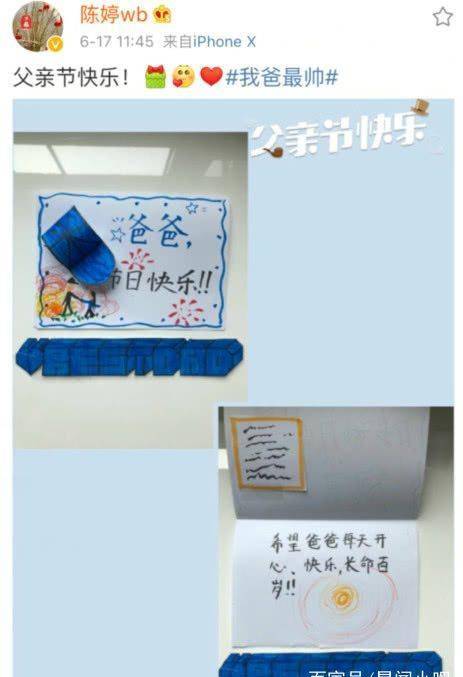 陈婷wb
6-17 11:45 来自iPhone X
父亲节快乐！ #我爸最帅#
父亲节快乐
爸爸，
节日快乐!!
希望爸爸每天开
心、快乐，长命百
岁!!